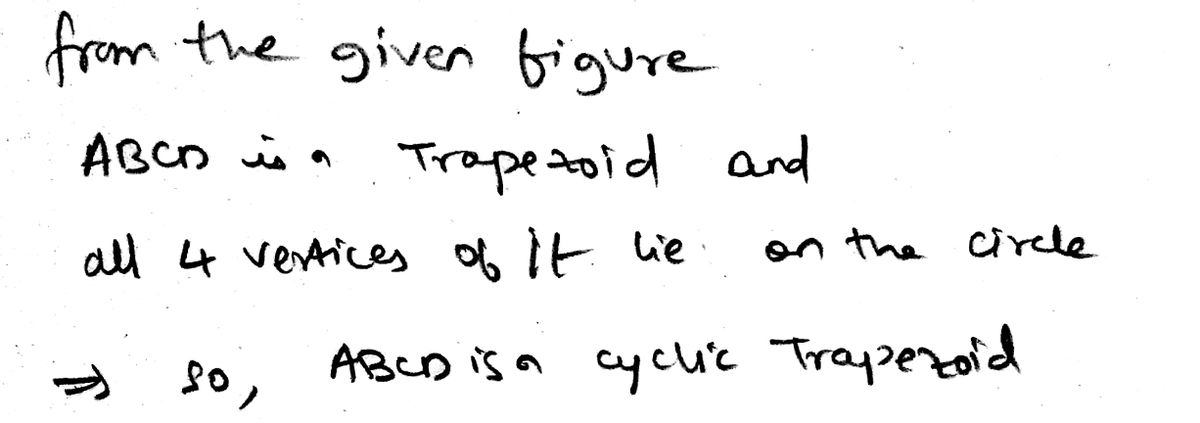 from the given figure
ABCD is a Trapezoid and
all 4 vertices of it lie on the circle
⇒ so, ABCD is a cyclic Trapezoid